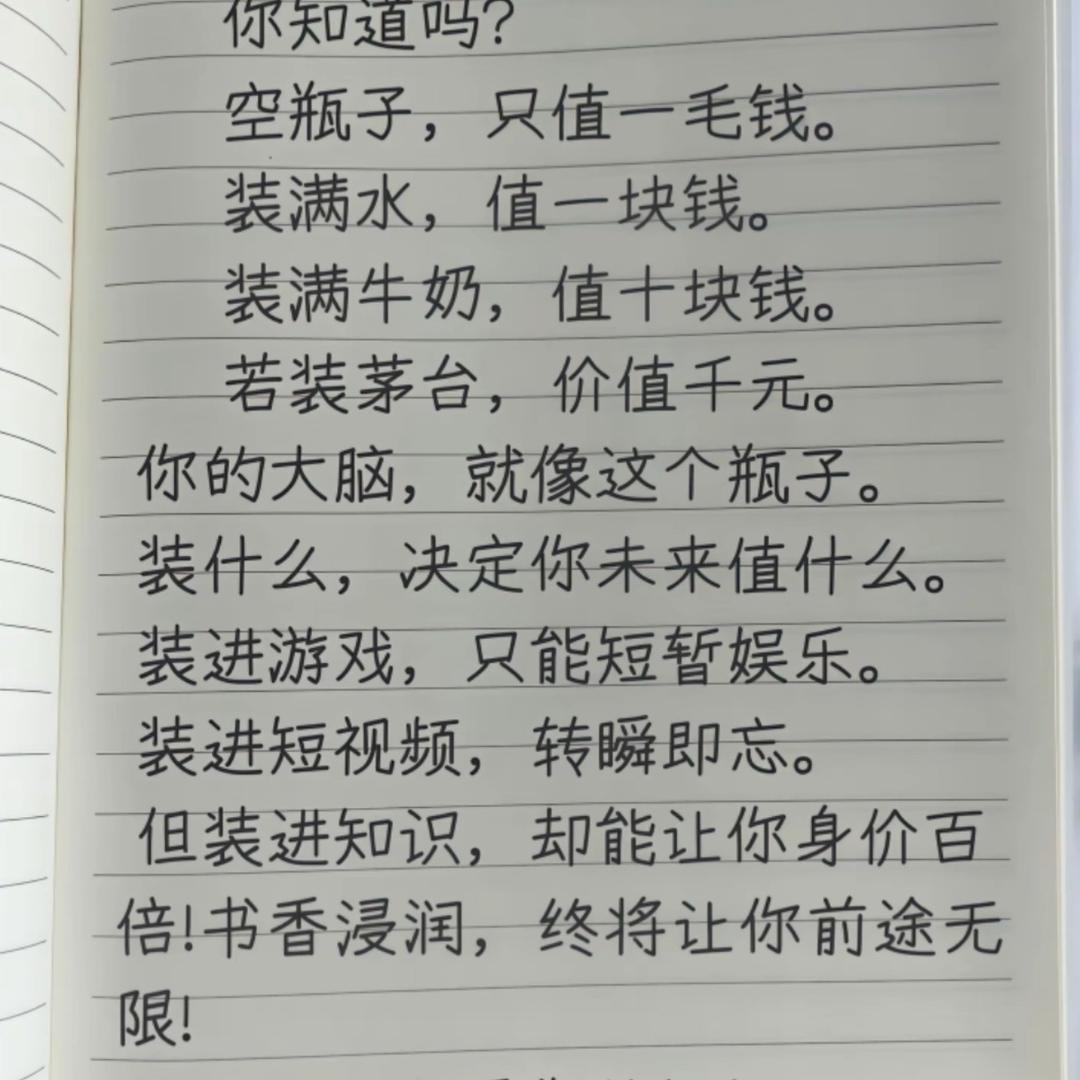 你知道吗?
空瓶子，只值一毛钱。
装满水，值一块钱。
装满牛奶，值十块钱。
若装茅台，价值千元。
你的大脑，就像这个瓶子。
装什么，决定你未来值什么。
装进游戏，只能短暂娱乐。
装进短视频，转瞬即忘。
但装进知识，却能让你身价百
倍!书香浸润，终将让你前途无
限!